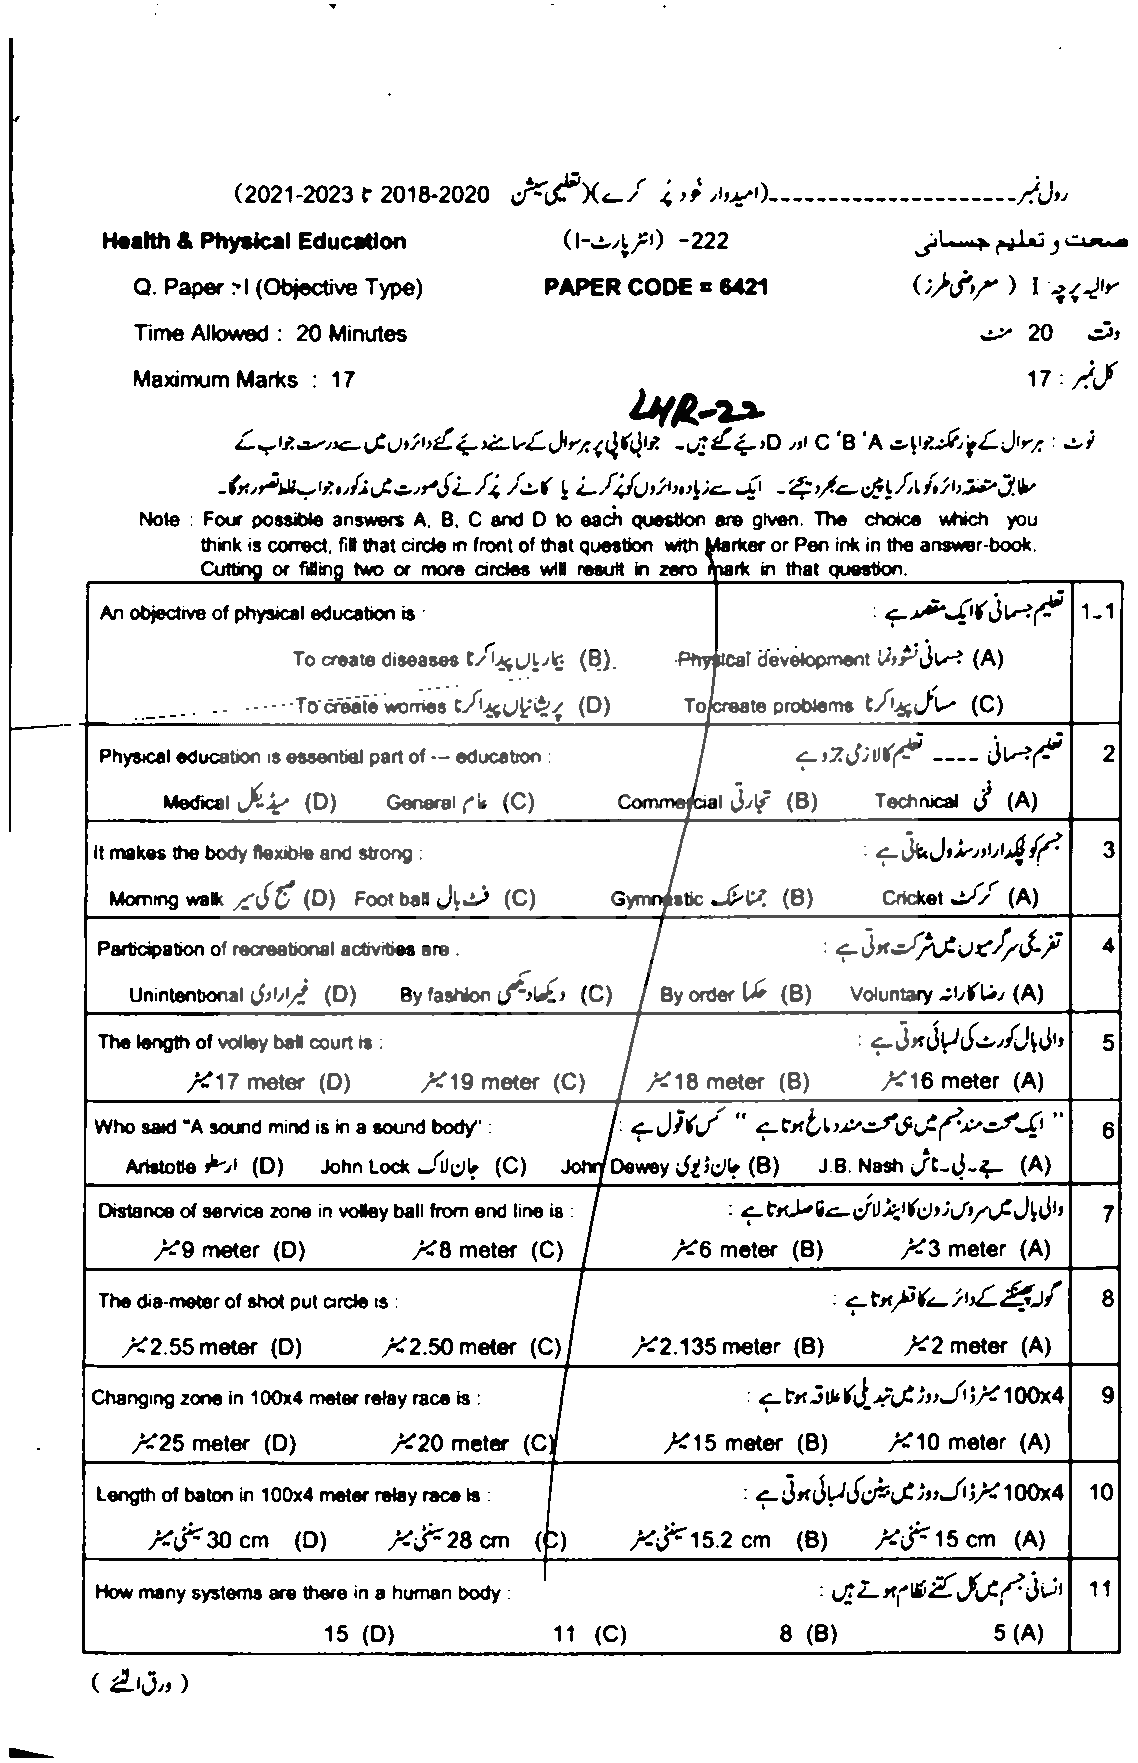 رول نمبر ----------------------(امیدوار خود پُر کرے)(تعلیمی سیشن 2018-2020 تا 2021-2023)
Health & Physical Education (انٹر پارٹ-I) -222 صحت و تعلیم جسمانی
Q. Paper :-I (Objective Type) PAPER CODE = 6421 سوالیہ پرچہ I ( معروضی طرز)
Time Allowed : 20 Minutes وقت 20 منٹ
Maximum Marks : 17 کل نمبر : 17
LHR-22
نوٹ : ہر سوال کے چار ممکنہ جوابات A 'B 'C اور D دیئے گئے ہیں۔ جوابی کاپی پر ہر سوال کے سامنے دیئے گئے دائروں میں سے درست جواب کے
مطابق متعلقہ دائرہ کو مارکر یا پین سے بھر دیجئے۔ ایک سے زیادہ دائروں کو پُر کرنے یا کاٹ کر پُر کرنے کی صورت میں مذکورہ جواب غلط تصور ہوگا۔
Note : Four possible answers A, B, C and D to each question are given. The choice which you
think is correct, fill that circle in front of that question with Marker or Pen ink in the answer-book.
Cutting or filling two or more circles will result in zero mark in that question.
An objective of physical education is : تعلیم جسمانی کا ایک مقصد ہے : 1-1
To create diseases بیماریاں پیدا کرنا (B) Physical development جسمانی نشوونما (A)
To create worries پریشانیاں پیدا کرنا (D) To create problems مسائل پیدا کرنا (C)
Physical education is essential part of --- education : تعلیم جسمانی ---- تعلیم کا لازمی جزو ہے 2
Medical میڈیکل (D) General عام (C) Commercial تجارتی (B) Technical فنی (A)
It makes the body flexible and strong : جسم کو لچکدار اور سڈول بناتی ہے : 3
Morning walk صبح کی سیر (D) Foot ball فٹ بال (C) Gymnastic جمناسٹک (B) Cricket کرکٹ (A)
Participation of recreational activities are . تفریحی سرگرمیوں میں شرکت ہوتی ہے : 4
Unintentional غیر ارادی (D) By fashion دیکھا دیکھی (C) By order حکما (B) Voluntary رضاکارانہ (A)
The length of volley ball court is : والی بال کورٹ کی لمبائی ہوتی ہے : 5
17 meter میٹر (D) 19 meter میٹر (C) 18 meter میٹر (B) 16 meter میٹر (A)
Who said "A sound mind is in a sound body" : " ایک صحت مند جسم میں ہی صحت مند دماغ ہوتا ہے " کس کا قول ہے : 6
Aristotle ارسطو (D) John Lock جان لاک (C) John Dewey جان ڈیوی (B) J.B. Nash جے-بی-ناش (A)
Distance of service zone in volley ball from end line is : والی بال میں سروس زون کا اینڈ لائن سے فاصلہ ہوتا ہے : 7
9 meter میٹر (D) 8 meter میٹر (C) 6 meter میٹر (B) 3 meter میٹر (A)
The dia-meter of shot put circle is : گولہ پھینکنے کے دائرے کا قطر ہوتا ہے : 8
2.55 meter میٹر (D) 2.50 meter میٹر (C) 2.135 meter میٹر (B) 2 meter میٹر (A)
Changing zone in 100x4 meter relay race is : 100x4 میٹر ڈاک دوڑ میں تبدیلی کا علاقہ ہوتا ہے : 9
25 meter میٹر (D) 20 meter میٹر (C) 15 meter میٹر (B) 10 meter میٹر (A)
Length of baton in 100x4 meter relay race is : 100x4 میٹر ڈاک دوڑ میں بیٹن کی لمبائی ہوتی ہے : 10
30 cm سینٹی میٹر (D) 28 cm سینٹی میٹر (C) 15.2 cm سینٹی میٹر (B) 15 cm سینٹی میٹر (A)
How many systems are there in a human body : انسانی جسم میں کل کتنے نظام ہوتے ہیں : 11
15 (D) 11 (C) 8 (B) 5 (A)
( ورق الٹیے )